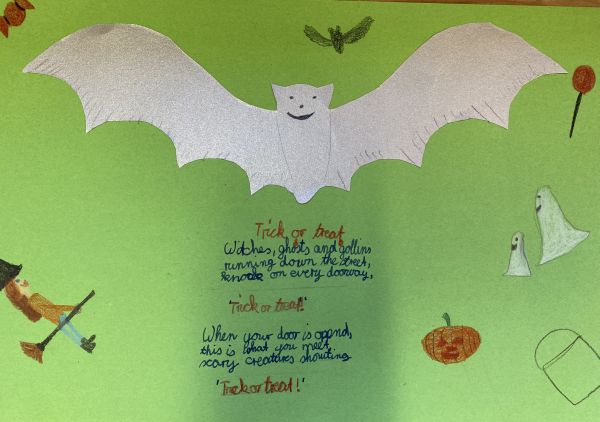 Trick or treat
Witches, ghosts and goblins
running down the street,
knock on every doorway,
'Trick or treat!'
When your door is opend,
this is what you meet,
scary creatures shouting
'Trick or treat!'